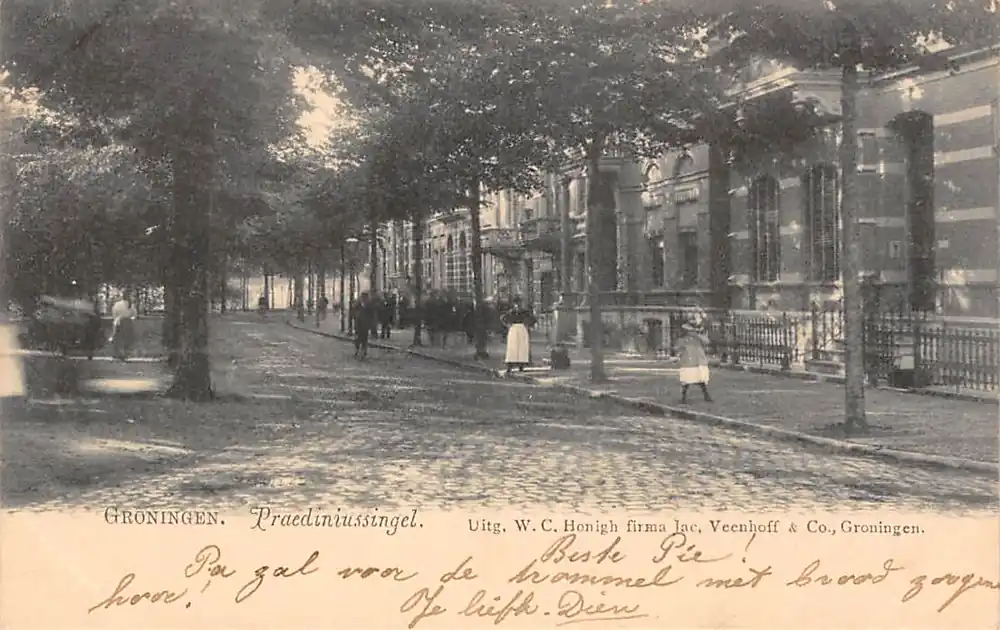 GRONINGEN. Praediniussingel. Uitg. W. C. Honigh firma Jac. Veenhoff & Co., Groningen.
Beste Pie!
Pa zal voor de trommel met brood zorgen
hoor! Je liefh. Dien